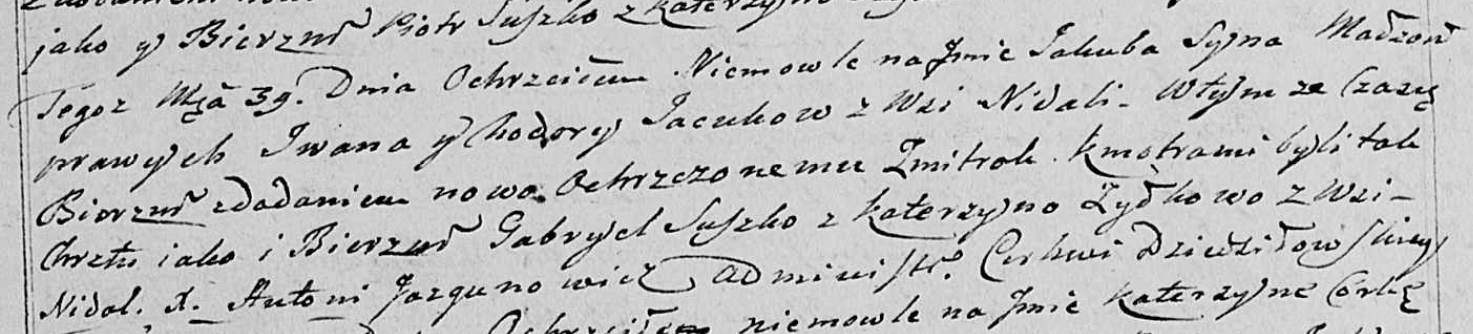 jako y Bierzm̃ Piotr Suszko z Katerzyno
Tegoz Mcã 39. Dnia Ochrzciłem Niemowle na Jmie Jakuba Syna Madzon̄
prawych Iwana y Chodory Jacukow z Wsi Nidali - Wtym ze Czasię
Bierzm̃ zdadaniem nowo Ochrzczonemu Zmitrok. Kmotrami byli tak
Chrztu iako i Bierzm̃ Gabryel Suszko z Katerzyno Zydkowo z Wsi -
Nidal. X. Antoni Jazgunowicz Administr. Cerkwi Dziedziłowskiey
Ochrzciłem niemowle na Jmie Katerzyne Corkę